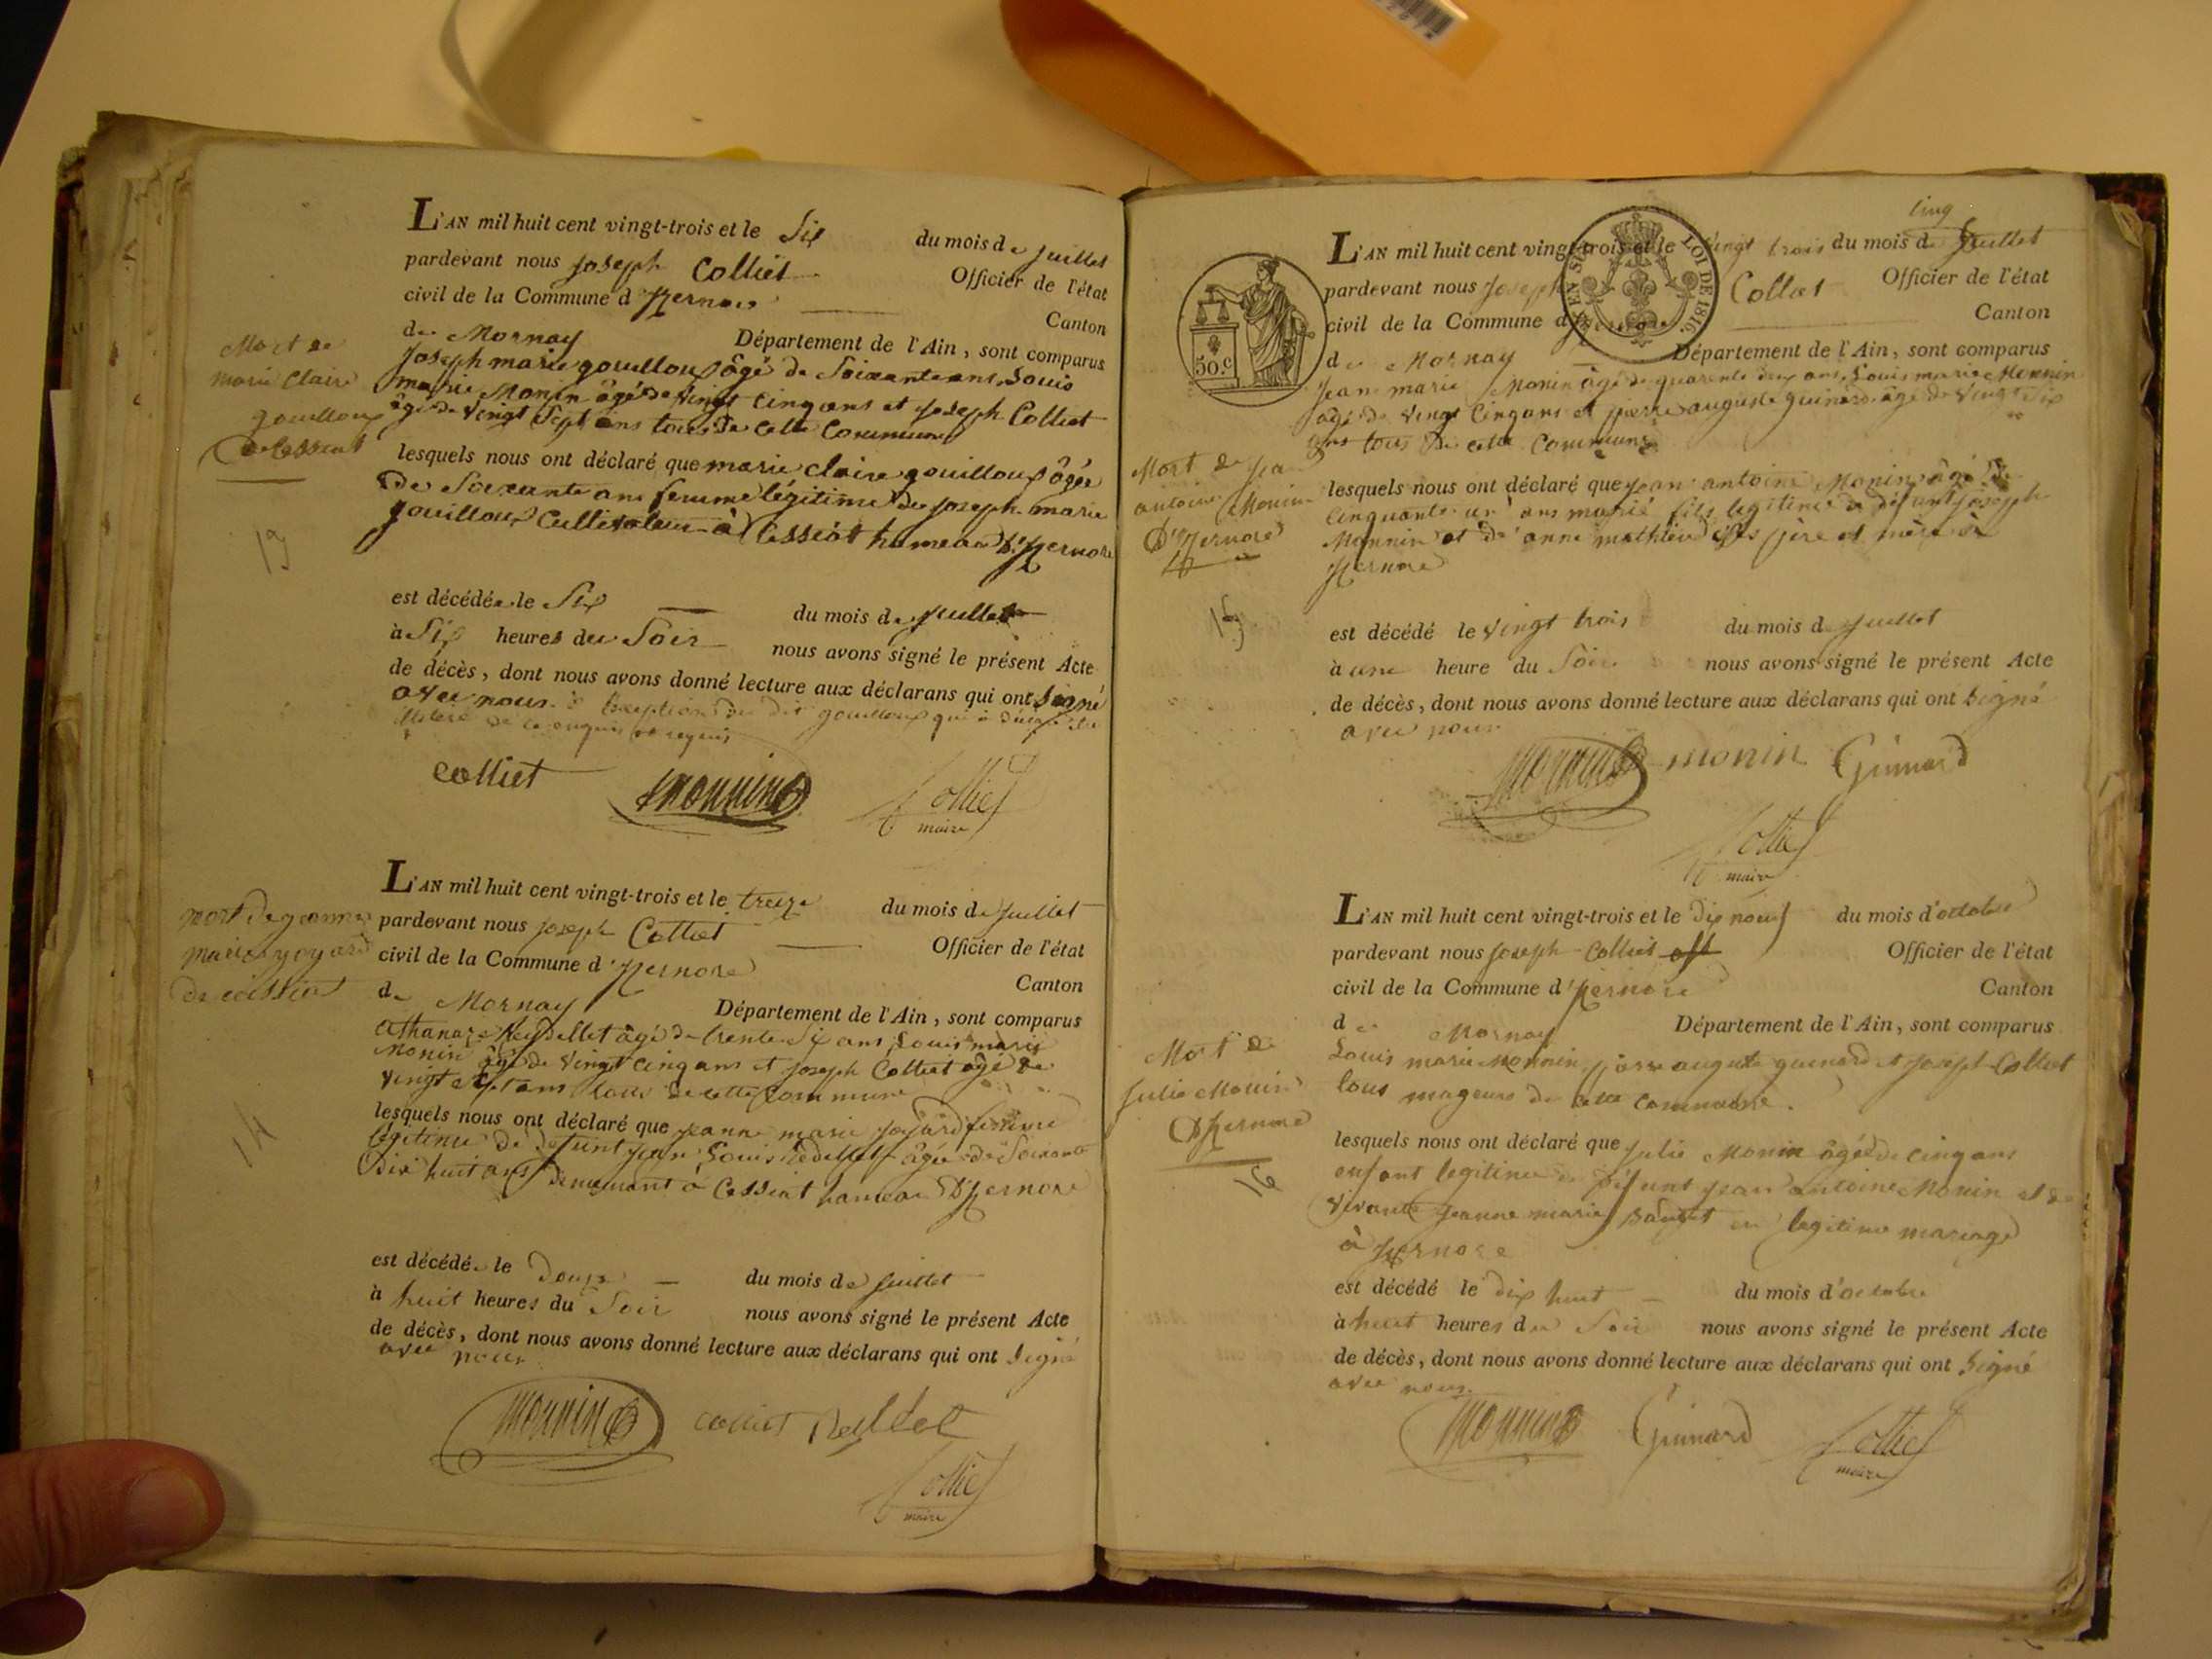 Mort de
marie Claire
gouilloux
de Cessiat
13
L'AN mil huit cent vingt-trois et le Six du mois de juillet
pardevant nous joseph Colliet Officier de l'état
civil de la Commune d'Izernore Canton
de Mornay Département de l'Ain, sont comparus
joseph marie gouilloux âgé de Soixante ans, Louis
marie Monin âgé de vingt Cinq ans et joseph Colliet
âgé de vingt Sept ans tous de cette Commune
lesquels nous ont déclaré que marie claire gouilloux âgée
de Soixante ans femme légitime de joseph marie
gouilloux Cultivateur à Cessiat hameau d'Izernore
est décédée le Six du mois de juillet
à Six heures du Soir nous avons signé le présent Acte
de décès, dont nous avons donné lecture aux déclarans qui ont Signé
avec nous à l'exception du dit gouilloux qui a déclaré être
illiteré de ce enquis et requis
Colliet Monnin Colliet
maire
mort de jeanne
marie joyard
de Cessiat
14
L'AN mil huit cent vingt-trois et le treize du mois de juillet
pardevant nous joseph Colliet Officier de l'état
civil de la Commune d'Izernore Canton
de Mornay Département de l'Ain, sont comparus
Athanaze Reydellet âgé de trente Six ans, Louis marie
Monin âgé de vingt Cinq ans et joseph Colliet âgé de
vingt Sept ans tous de cette Commune
lesquels nous ont déclaré que jeanne marie joyard femme
légitime de défunt jean Louis âgée de Soixante
dix huit ans demeurant à Cessiat hameau d'Izernore
est décédée le Douze du mois de juillet
à huit heures du Soir nous avons signé le présent Acte
de décès, dont nous avons donné lecture aux déclarans qui ont Signé
avec nous
Monnin Colliet Reydellet
Colliet
maire
Cinq
50.c
LOI DE 1816.
Mort de jean
antoine Monin
D'Izernore
15
L'AN mil huit cent vingt-trois et le vingt trois du mois de juillet
pardevant nous joseph Colliet Officier de l'état
civil de la Commune d'Izernore Canton
de Mornay Département de l'Ain, sont comparus
jean marie Monin âgé de quarente deux ans, Louis marie Monnin
âgé de vingt Cinq ans et pierre auguste guinard âgé de vingt Six
ans tous de cette Commune
lesquels nous ont déclaré que jean antoine Monin âgé de
Cinquante un ans marié fils légitime de défunt joseph
Monnin et d'anne mathieu Ses père et mère à
Izernore
est décédé le vingt trois du mois de juillet
à une heure du Soir nous avons signé le présent Acte
de décès, dont nous avons donné lecture aux déclarans qui ont Signé
avec nous
Monnin monin Guinard
Colliet
maire
Mort de
julie Monin
D'Izernore
16
L'AN mil huit cent vingt-trois et le dix neuf du mois d'octobre
pardevant nous joseph Colliet off Officier de l'état
civil de la Commune d'Izernore Canton
de Mornay Département de l'Ain, sont comparus
Louis marie Monnin, pierre auguste guinard et joseph Colliet
tous mageurs de cette Commune.
lesquels nous ont déclaré que julie Monin âgée de Cinq ans
enfant légitime de défunt jean antoine Monin et de
vivante jeanne marie en légitime mariage
à Izernore
est décédé le dix huit du mois d'octobre
à huit heures du Soir nous avons signé le présent Acte
de décès, dont nous avons donné lecture aux déclarans qui ont Signé
avec nous.
Monnin Guinard Colliet
maire